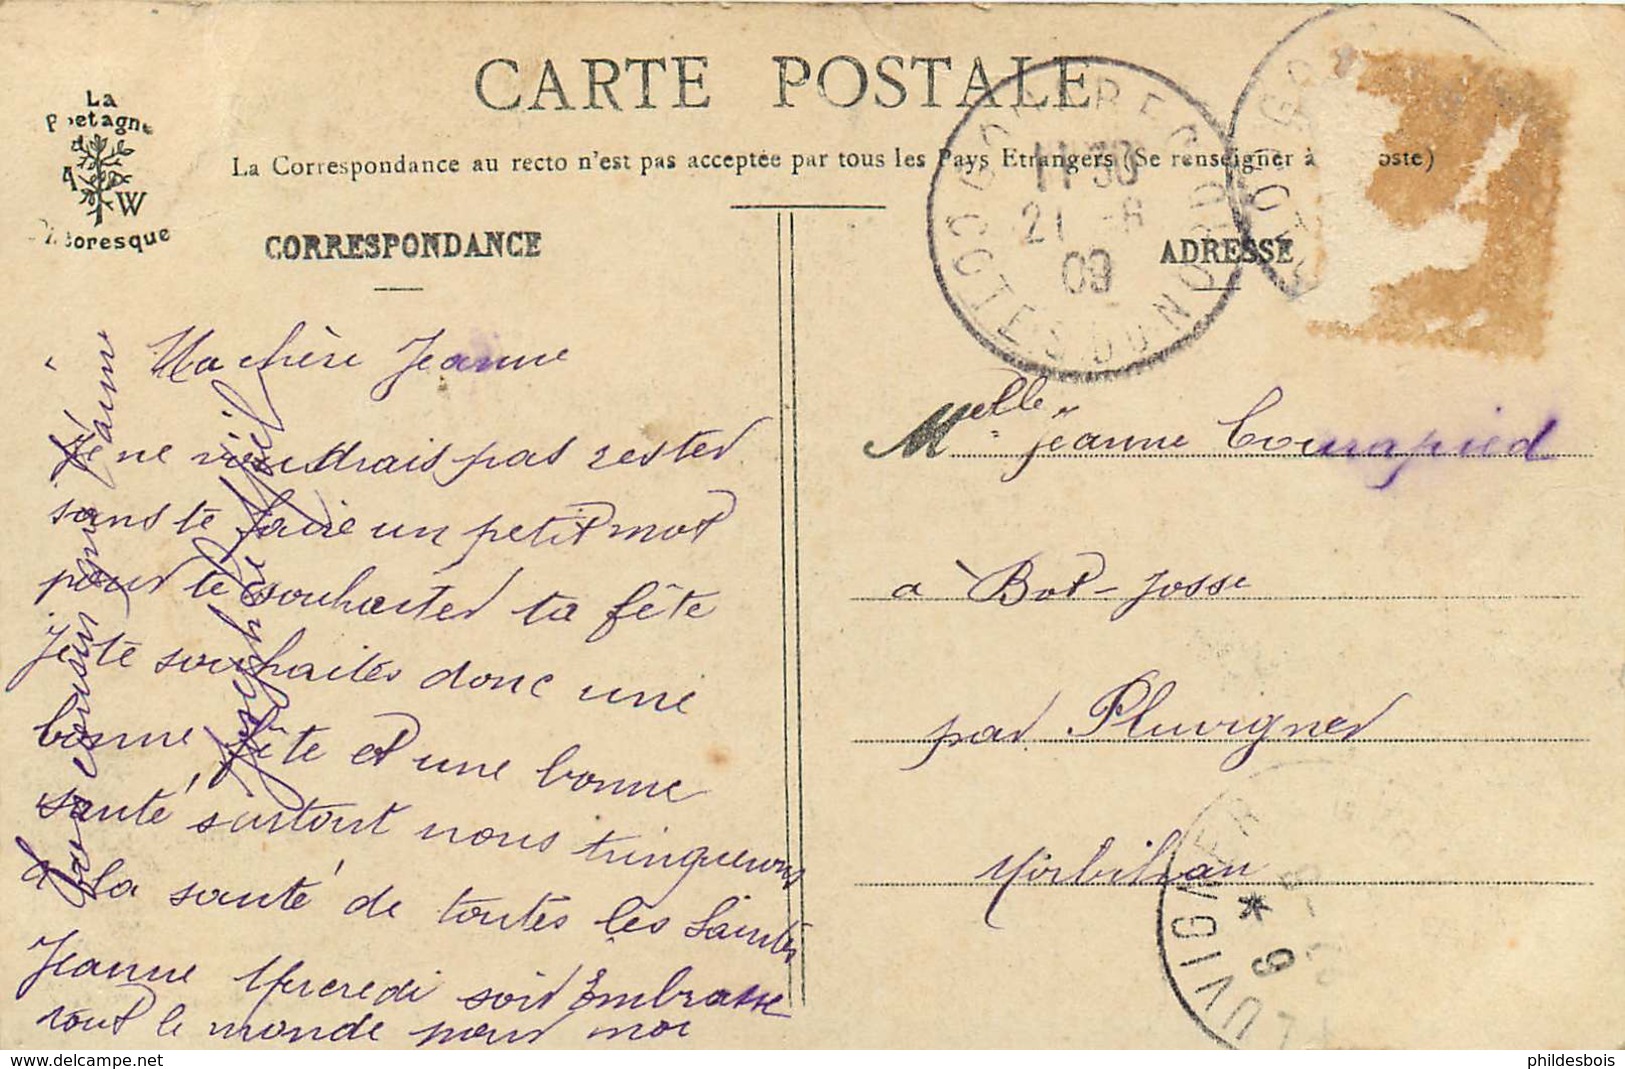 CARTE POSTALE
La
Bretagne
A W
Pittoresque
La Correspondance au recto n'est pas acceptée par tous les Pays Etrangers (Se renseigner à Poste)
CORRESPONDANCE
ADRESSE
11 30
21 -8
09
COTES DU NORD
Ma chère Jeanne
Je ne voudrais pas rester
sans te faire un petit mot
pour te souhaiter ta fête
Je te souhaites donc une
bonne fête et une bonne
santé surtout nous tringuerons
à la santé de toutes les Saintes
Jeanne Mercredi soir Embrasse
tout le monde pour moi
Joseph
Jeanne
Melle Jeanne Courapied
à Bot-Josse
par Pluvigner
Morbihan
PLUVIGNER
phildesbois